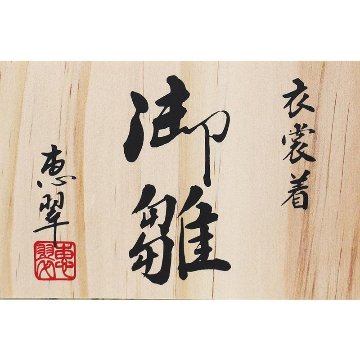 衣裳着
御雛
恵翠